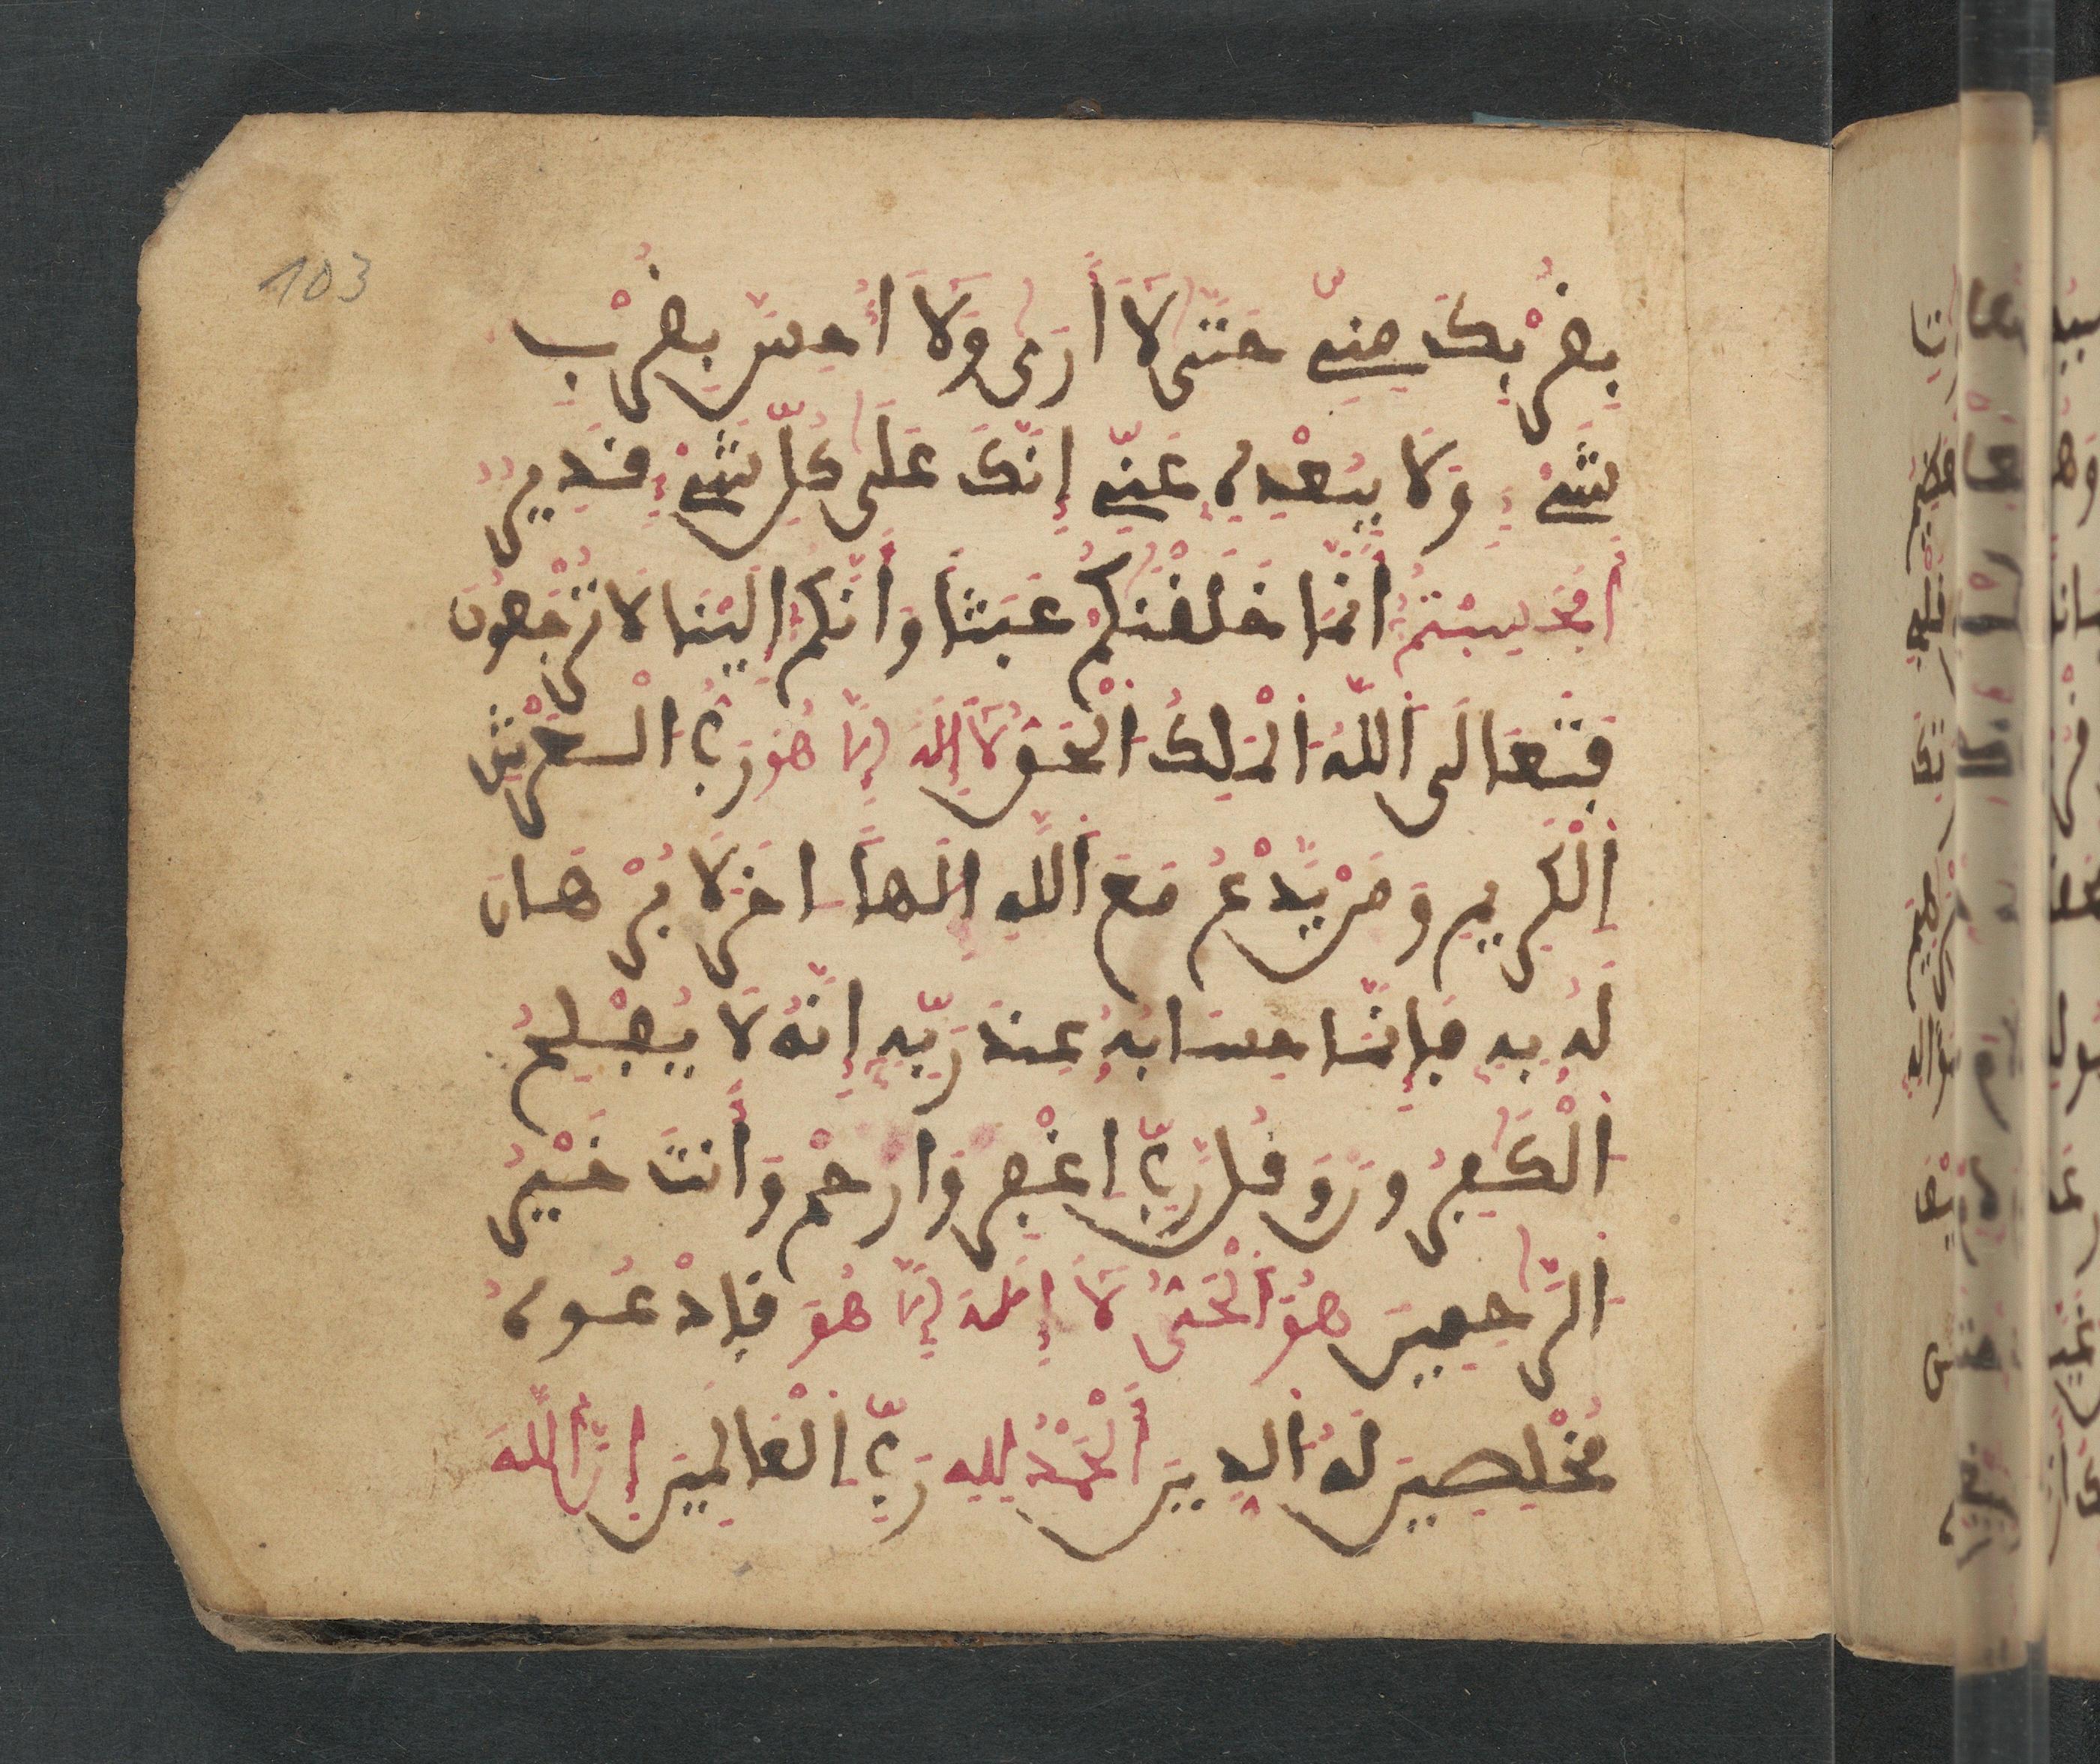 103
بِقُرْبِكَ مِنِّي حَتَّى لَا أَرَى وَلَا أُحِسَّ بِقُرْبِ
شَيْءٍ وَلَا بِبُعْدِهِ عَنِّي إِنَّكَ عَلَى كُلِّ شَيْءٍ قَدِيرٌ
أَفَحَسِبْتُمُ أَنَّمَا خَلَقْنَكُمْ عَبَثًا وَأَنَّكُمْ إِلَيْنَا لَا تُرْجَعُونَ
فَتَعَالَى اللَّهُ الْمَلِكُ الْحَقُّ لَا إِلَهَ إِلَّا هُوَ رَبُّ الْعَرْشِ
الْكَرِيمِ وَمَنْ يَّدْعُ مَعَ اللَّهِ إِلَهًا اخَرَ لَا بُرْهَانَ
لَهُ بِهِ فَإِنَّمَا حِسَابُهُ عِندَ رَبِّهِ إِنَّهُ لَا يُفْلِحُ
الْكَفِرُونَ وَقُل رَّبِّ اغْفِرْ وَارْحَمْ وَأَنتَ خَيْرُ
الرَّحِمِينَ هُوَ الْحَيُّ لَا إِلَهَ إِلَّا هُوَ فَادْعُوهُ
مُخْلِصِينَ لَهُ الدِينَ الْحَمْدُ لِلهِ رَبِّ الْعَالَمِينَ إِنَّ اللَّهَ